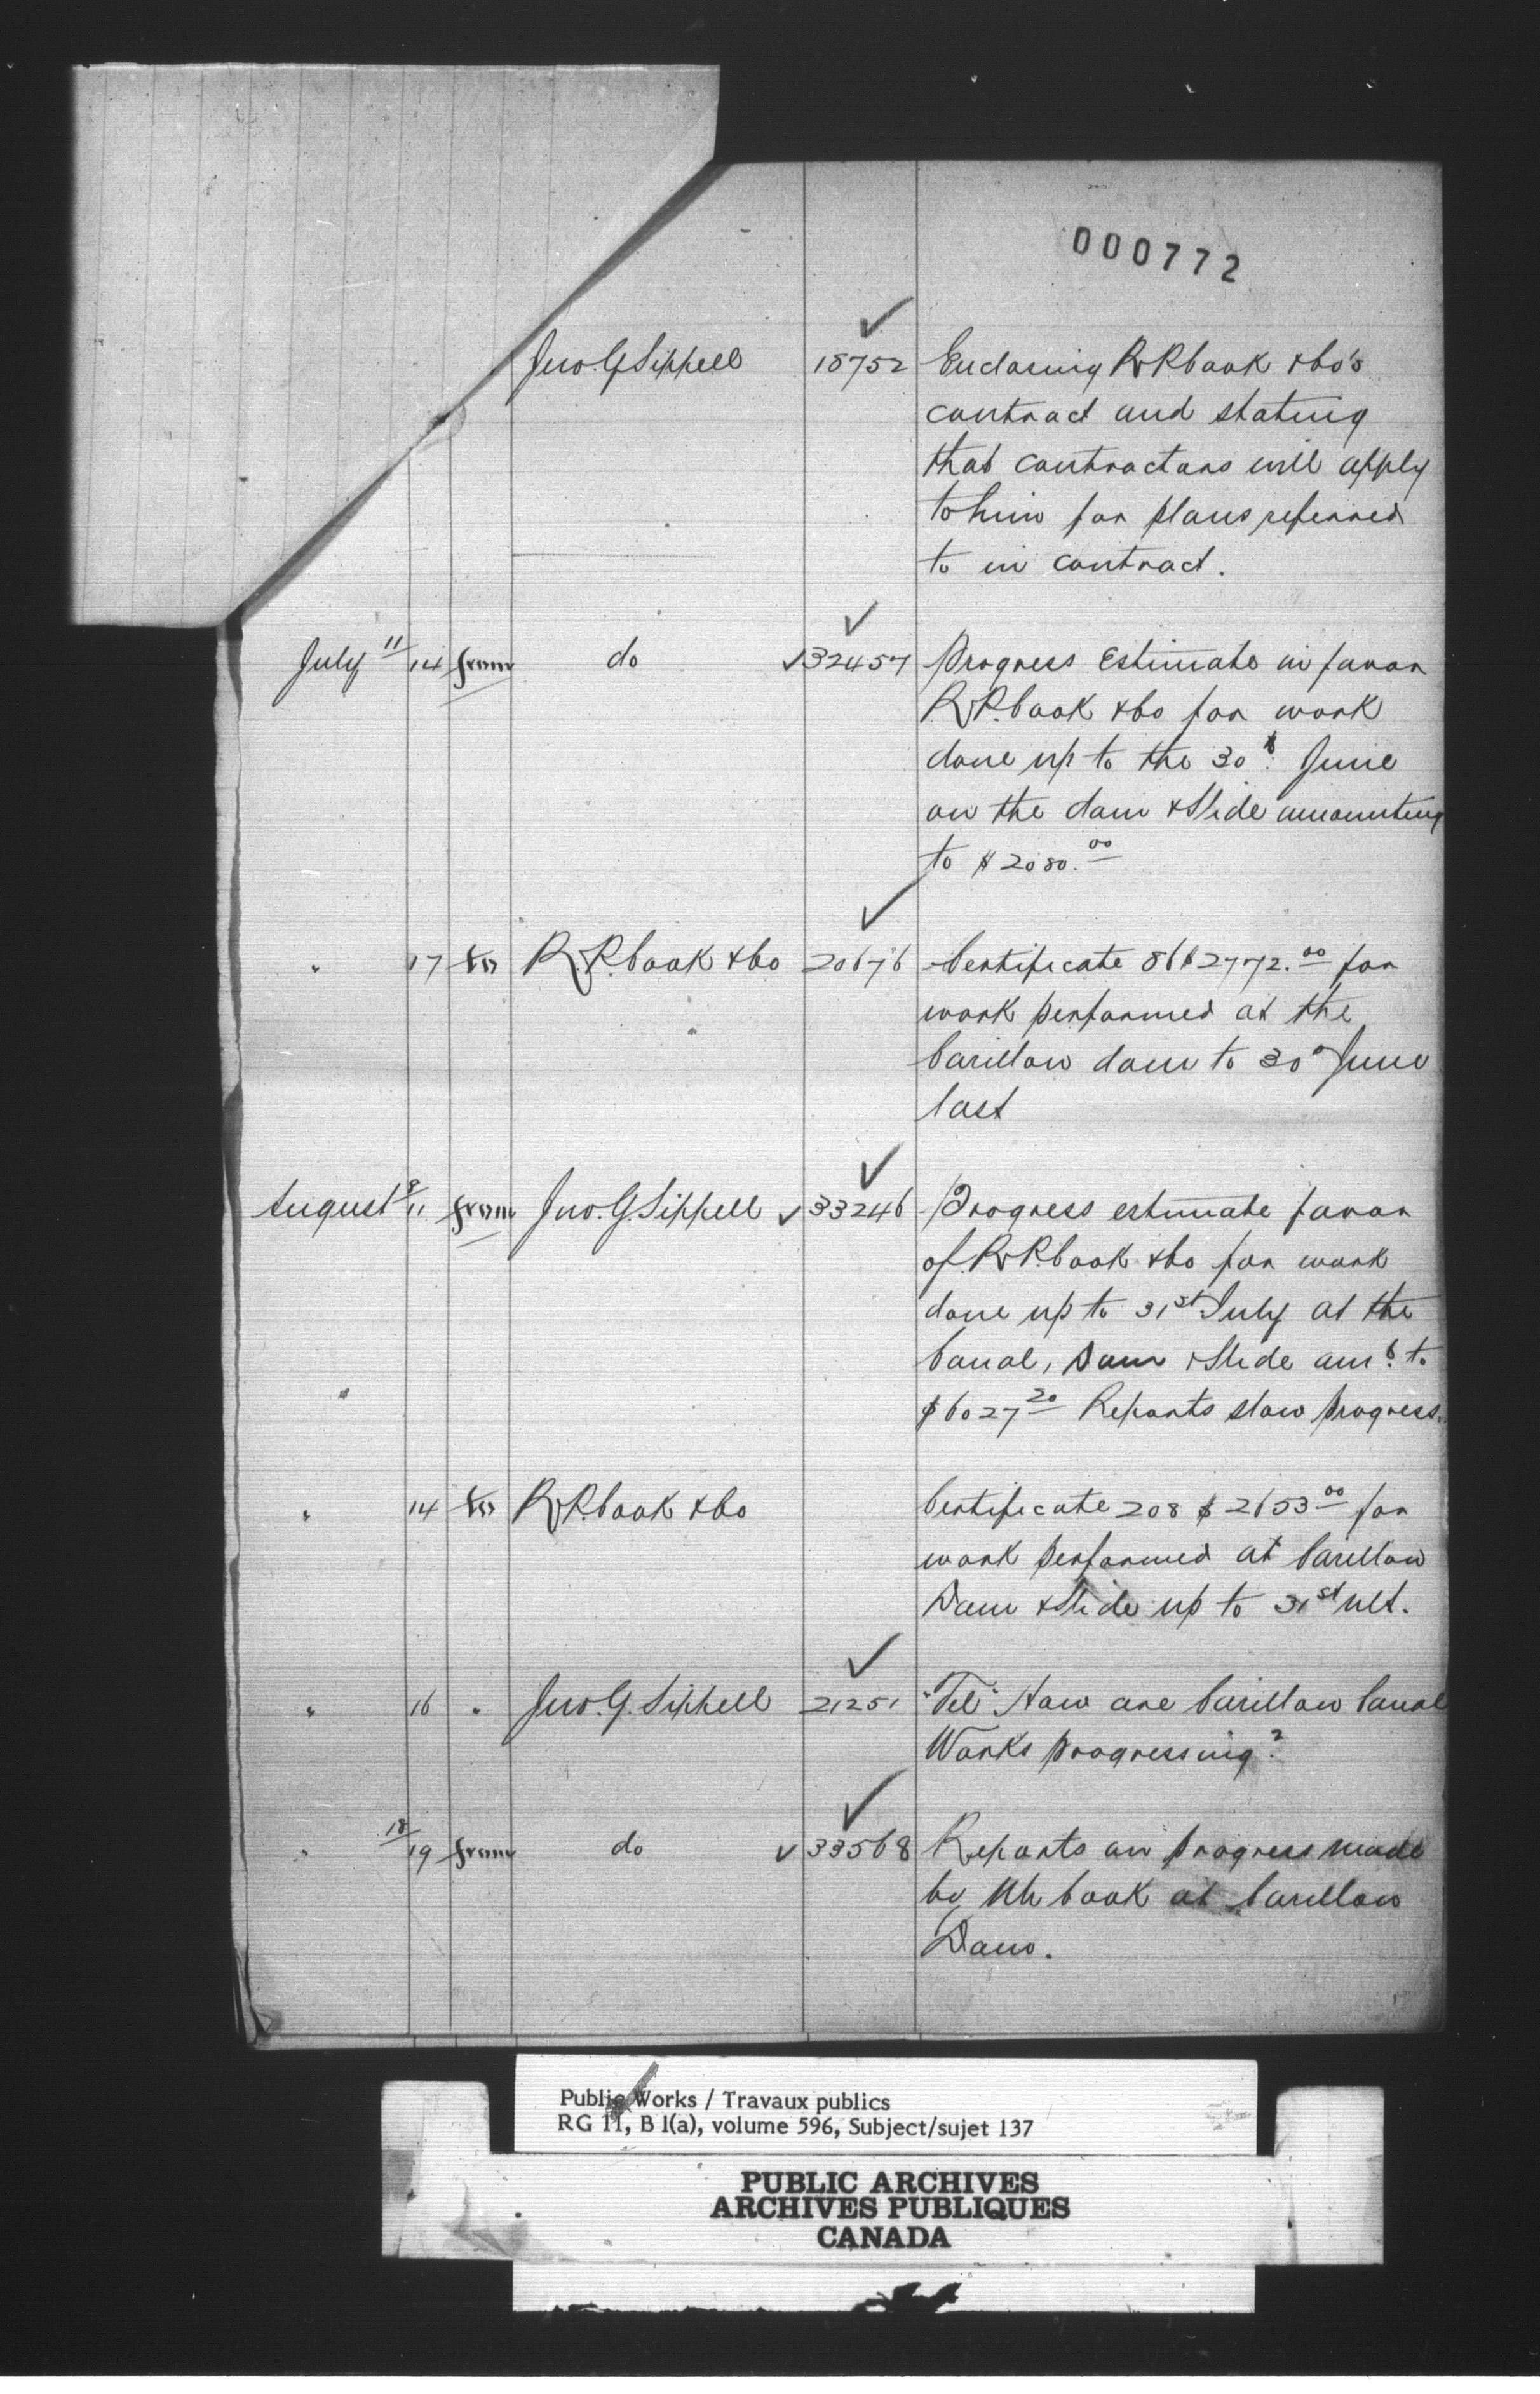 000772
✓
Jno. G. Sippell 18752 Enclosing R. P. Cook & Co's
contract and stating
that contractors will apply
to him for plans referred
to in contract.
✓
July 11/14 from do ✓32457 Progress Estimate in favor
R. P. Cook & Co for work
done up to the 30th June
on the dam & Slide amounting
to $2080.00
✓
" 17 to R. P. Cook & Co 20676 Certificate 86 $2772.00 for
work performed at the
Carillon dam to 30 June
last
✓
August 8/11 from Jno. G. Sippell ✓33246 Progress estimate favor
of R. P. Cook & Co for work
done up to 31st July at the
Canal, Dam & Slide amt. to
$6027 20 Reports slow progress.
" 14 to R. P. Cook & Co Certificate 208 $2653 00 for
work performed at Carillon
Dam & Slide up to 31st ult.
✓
" 16 " Jno. G. Sippell 21251 "Tel" How are Carillon Canal
Works progressing?
✓
" 18/19 from do ✓33568 Reports on progress made
by Mr Cook at Carillon
Dam.
Public Works / Travaux publics
RG 11, B 1(a), volume 596, Subject/sujet 137
PUBLIC ARCHIVES
ARCHIVES PUBLIQUES
CANADA